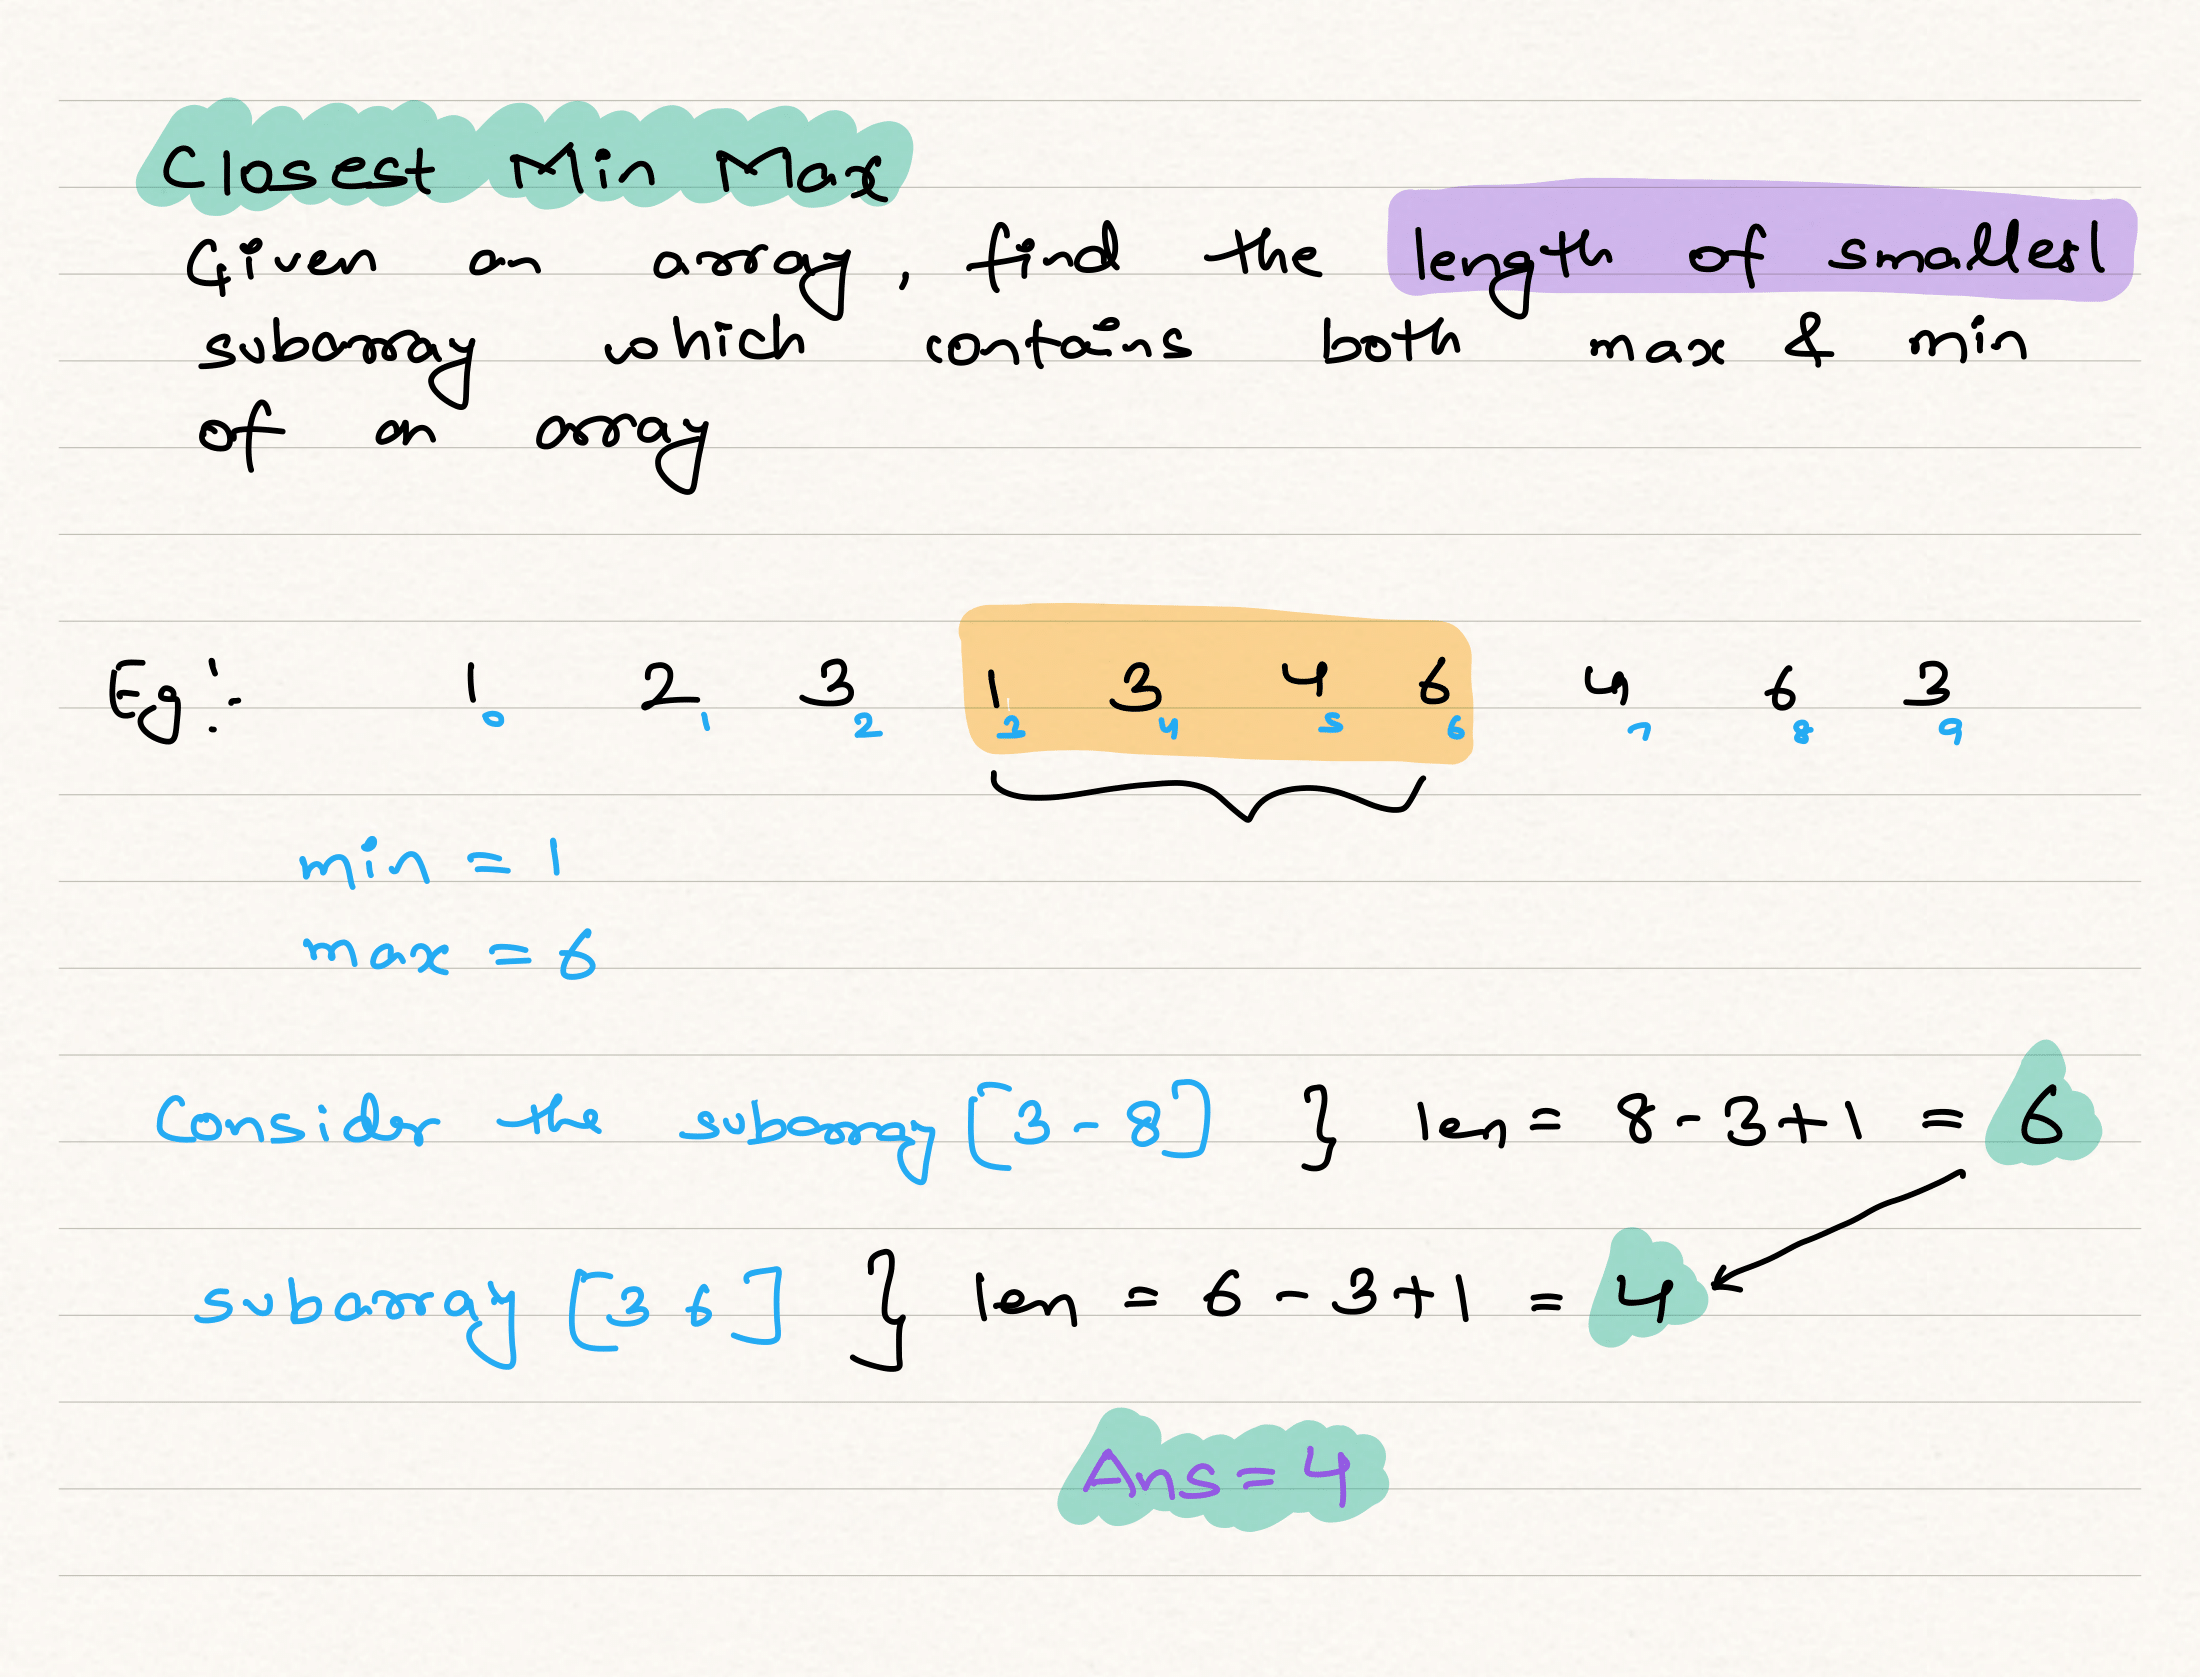 Closest Min Max
Given an array, find the length of smallest
subarray which contains both max & min
of an array
Eg:- 1 2 3 1 3 4 6 4 6 3
0 1 2 3 4 5 6 7 8 9
min = 1
max = 6
Consider the subarray [3-8] } len = 8-3+1 = 6
subarray [3 6] } len = 6-3+1 = 4
Ans=4